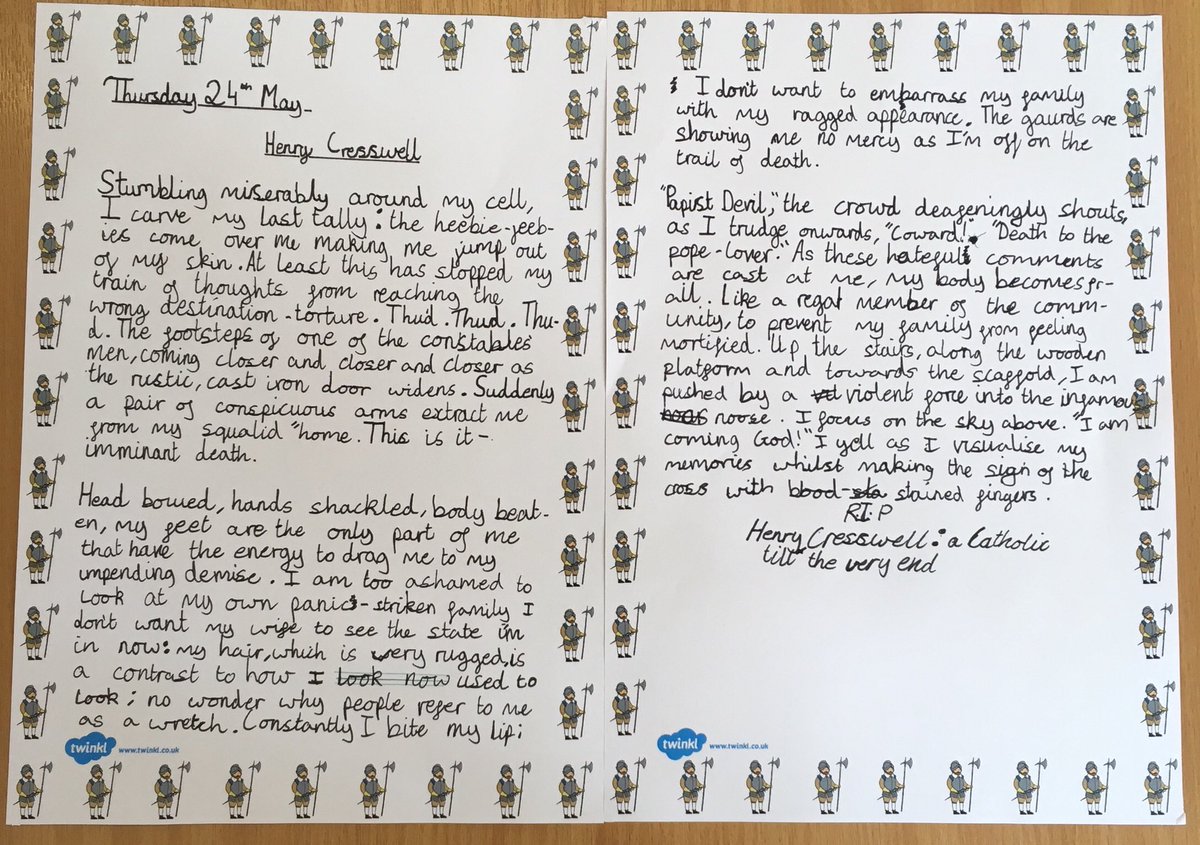 Thursday 24th May
Henry Cresswell
Stumbling miserably around my cell,
I carve my last tally: the heebie-jeeb-
ies come over me making me jump out
of my skin. At least this has stopped my
train of thoughts from reaching the
wrong destination - torture. Thud. Thud. Thu-
d. The footsteps of one of the constables
men, coming closer and closer and closer as
the rustic, cast iron door widens. Suddenly
a pair of conspicuous arms extract me
from my squalid "home. This is it -
imminant death.
Head bowed, hands shackled, body beat-
en, my feet are the only part of me
that have the energy to drag me to my
impending demise. I am too ashamed to
look at my own panic-striken family I
don't want my wife to see the state i'm
in now: my hair, which is very rugged, is
a contrast to how I look now used to
look; no wonder why people refer to me
as a wretch. Constantly I bite my lip;
twinkl www.twinkl.co.uk
I don't want to embarrass my family
with my ragged appearance. The gaurds are
showing me no mercy as I'm off on the
trail of death.
"Papist Devil," the crowd deafeningly shouts,
as I trudge onwards, "Coward!" "Death to the
pope-lover." As these hateful comments
are cast at me, my body becomes fr-
ail. Like a regal member of the comm-
unity, to prevent my family from feeling
mortified. Up the stairs, along the wooden
platform and towards the scaffold, I am
pushed by a violent force into the infamou
noose. I focus on the sky above. "I am
coming God!" I yell as I visualise my
memories whilst making the sign of the
cross with blood-sta stained fingers.
R.I.P
Henry Cresswell: a Catholic
till the very end
twinkl www.twinkl.co.uk